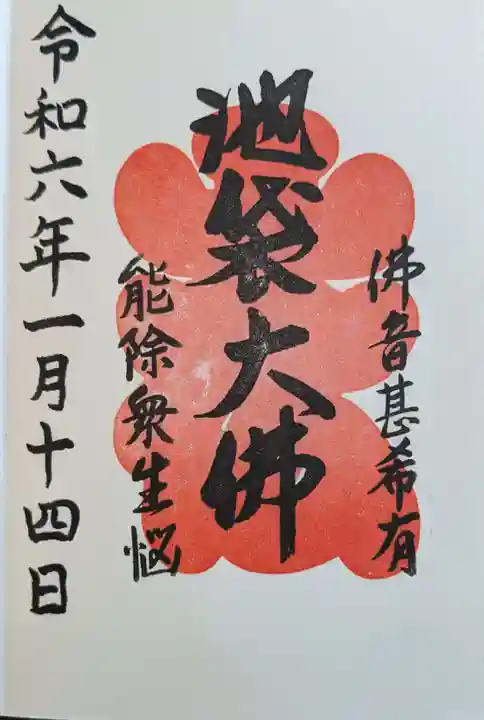 佛音甚希有
池袋大佛
能除衆生惱
令和六年一月十四日